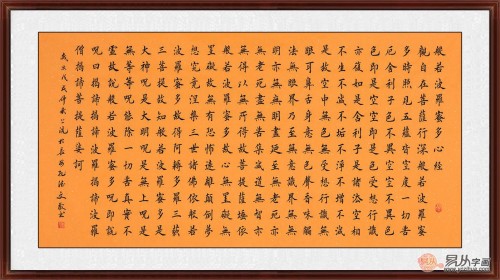 般若波羅蜜多心經
觀自在菩薩行深般若波羅蜜
多時照見五蘊皆空度一切苦
厄舍利子色不異空空不異色
色即是空空即是色受想行識
亦復如是舍利子是諸法空相
不生不滅不垢不淨不增不減
是故空中無色無受想行識無
眼耳鼻舌身意無色聲香味觸
法無眼界乃至無意識界無無
明亦無無明盡乃至無老死亦
無老死盡無苦集滅道無智亦
無得以無所得故菩提薩埵依
般若波羅蜜多故心無罣礙無
罣礙故無有恐怖遠離顛倒夢
想究竟涅槃三世諸佛依般若
波羅蜜多故得阿耨多羅三藐
三菩提故知般若波羅蜜多是
大神呪是大明呪是無上呪是
無等等呪能除一切苦真實不
虛故說般若波羅蜜多呪即說
呪曰揭諦揭諦波羅揭諦波羅
僧揭諦菩提薩婆訶
易从字画